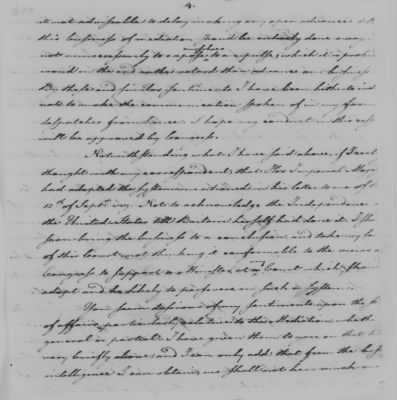 4.
it not adviseable to delay making any open advances till
this business of mediation, should be entirely done away:
not unnecessarily to expose ourselves to a repulse, which it
would in the end rather retard than advance our business
By these and similar sentiments I have been hitherto
not to make the communication spoken of in my former
despatches from hence. I hope my conduct in this case
will be approved by Congress.
Notwithstanding what I have said above, if I
thought with my correspondent, that Her Imperial Majes
had adopted the System mentioned in his letter to me of
12th of Septr. viz. Not to acknowledge the Independence
the United States till Britain herself had done it, I sh
soon bring the business to a conclusion, and take my le
of this Court, not thinking it conformable to the views
Congress to support a Minister at a Court which shou
adopt and be likely to persevere in such a System.
You seem desirous of my sentiments upon the
of affairs, particularly relative to the Mediation, wheth
general or partial. I have given them to you on that
very briefly above: and I can only add: that from the best
intelligence I can obtain, we shall not hear much